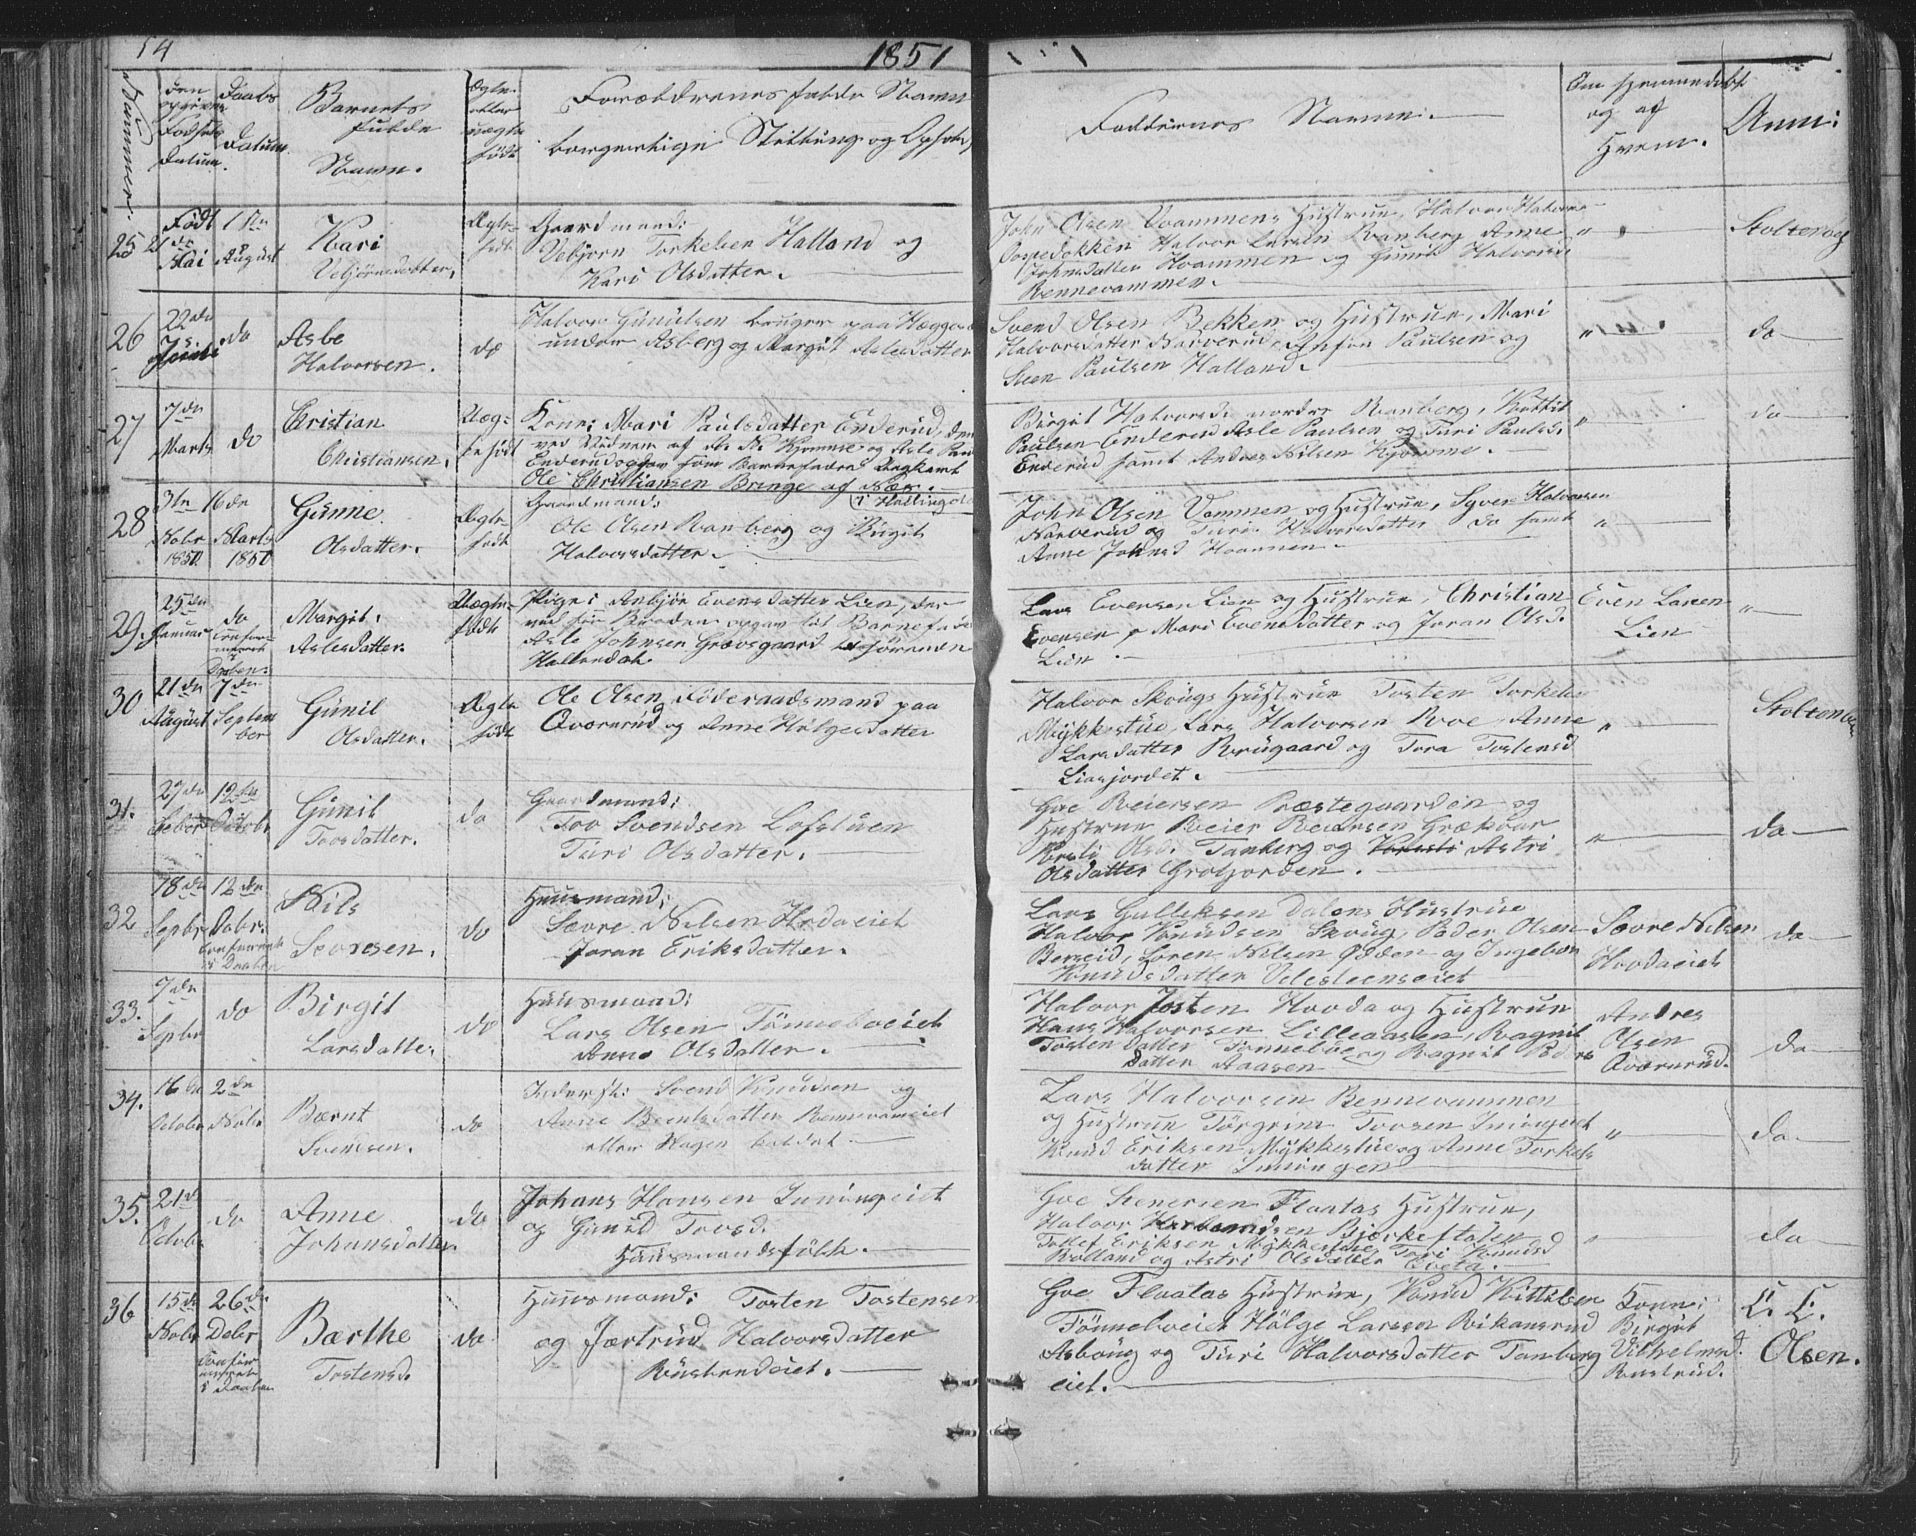 54
1851
Nummer.
Den opgivne Fødsels Datum.
Daabs Datum.
Barnets fulde Navn.
Ægte eller uægte født
Forældrenes fulde Navn
borgerlige Stilling og Opholds
Faddernes Navne.
Om hjemmedøbt og af Hvem.
Anm:
25
Født 21de Mai
1ste August
Kari
Vebjørnsdatter,
Ægte født
Gaardmand:
Vebjørn Torkelsen Halland og
Kari Olsdatter.
John Olsen Hvammens Hustrue, Halvor Halvors
Halvor Larsen Ranberg Anne
Johnsdatter Hvammen og Gunil Halvorsd.
Rennevammen.
"
Stoltenberg
26
22de
do
Asle
Halvorsen.
do
Halvor Gunulsen bruger paa
under Asberg og Margit Aslesdatter
Svend Olsen Bekken og Hustrue, Mari
Halvorsdatter Narverud, Anfin Paulsen og
Steen Paulsen Halland.
"
do
27
7de
Marts
do
Christian
Christiansen.
Uægte født
Kone: Mari Paulsdatter Enderud, den
ved Vidnerne af og Asle Paul
Enderud som Barnefader Ungkarl
Ole Christiansen Bringe af Næs.
i Hallingdal
Birgit Halvorsd. nordre Ranberg, Knettil
Paulsen Enderud Asle Paulsen og Turi Paulsd.
Enderud samt Andres Nilsen Kjømme.
"
do
28
3te
Nobr
1850
16de
Marts
1850
Gunne
Olsdatter.
Ægte født
Gaardmand:
Ole Olsen Ranberg og Birgit
Halvorsdatter.
John Olsen Vammen og Hustrue, Syver Halvorsen
Narverud og Turi Halvorsdatter do samt
Anne Johnsd Hvammen.
"
29.
25de
Januar
do
Confirmeret
i Daaben.
Margit
Aslesdatter.
Uægte født
Pige: Anbjør Evensdatter Lien, der
opgav til Barnefader
Asle Johnsen Grævsgaard
Hallingdal.
Lars Evensen Lien og Hustrue, Christian
Evensen, Mari Evensdatter og Joran Olsd.
Lien.
Even Larsen
Lien
"
30
21de
August
7de
September
Gunil
Olsdatter.
Ægte født
Ole Olsen Føderaadsmand paa
Qværnrud og Anne Holgesdatter
Halvor Skougs Hustrue Tosten Torkels
Mykkestue, Lars Halvorsen Roe Anne
Larsdatter Brugaard og Tora Tostensd
Liosjordet.
"
Stoltenberg
31.
27de
Sebr
12te
Octobr
Gunil
Toosdatter.
do
Gaardmand:
Too Svendsen Lofstuen
Turi Olsdatter.
Goe Reiersen Præstegaarden og
Hustrue Reier Reiersen Grækaar
Kersti Olsd. Tanberg og Astri
Olsdatter Grøtjorden.
"
do
32
18de
Sepbr
12de
Octobr.
Confirmert
i Daaben
Nils
Sevresen.
do
Huusmand:
Sævre Nilsen Hovdaeiet
Joran Eriksdatter.
Lars Gulleksen Dalens Hustrue
Halvor Knudsen Skoug, Peder Olsen
Berseid, Søren Nilsen Odden og Ingeborg
Knudsdatter Velesteenseiet
Sævre Nilsen
Hovdaeiet
do
33.
7de
Sepbr
do
Birgit
Larsdatter.
do
Huusmand:
Lars Olsen Tønneboeiet
Anne Olsdatter.
Halvor Josten Hovda og Hustrue
Hans Halvorsen Lilleaasen, Ragnil
Tostendatter Tønnebøe og Ragnil Peders
datter Aaasen
Andres
Olsen
Qværnrud.
do
34.
16de
Octobr
2de
Nobr
Bærnt
Svensen.
do
Inderst: Svend Knudsen og
Anne Berntsdatter Rennevameiet
eller Hagen kaldet
Lars Halvorsen Rennevammen
og Hustrue Torgrim Toosen Iningeiet
Knud Eriksen Mykkestue og Anne Torkels
datter Iningen
"
do
35.
21de
Octobr
do
Anne
Johansdatter
do
Johans Hansen Iuningeiet
og Gunild Toosd.
Huusmandsfolk.
Goe Stenersen Flaatas Hustrue,
Halvor Bjørkestølen
Tollef Eriksen Mykkestue Turi Knudsd
Rolland og Astri Olsdatter Eveta.
"
do
36
15de
Nobr
26de
Debr
Confirmeret
i Daaben
Bærthe
Tostensd.
do
Huusmand: Tosten Tostensen
og Jærtrud Halvorsdatter
Rustandeiet.
Goe Flaatas Hustrue, Knud Kittelsen
Tønneboeiet Holge Larsen Rikansrud
Asboug og Turi Halvorsdatter Tanberg
eiet.
Kone:
Birgit
Vilhelmsd.
Rustrud.
C. C.
Olsen.